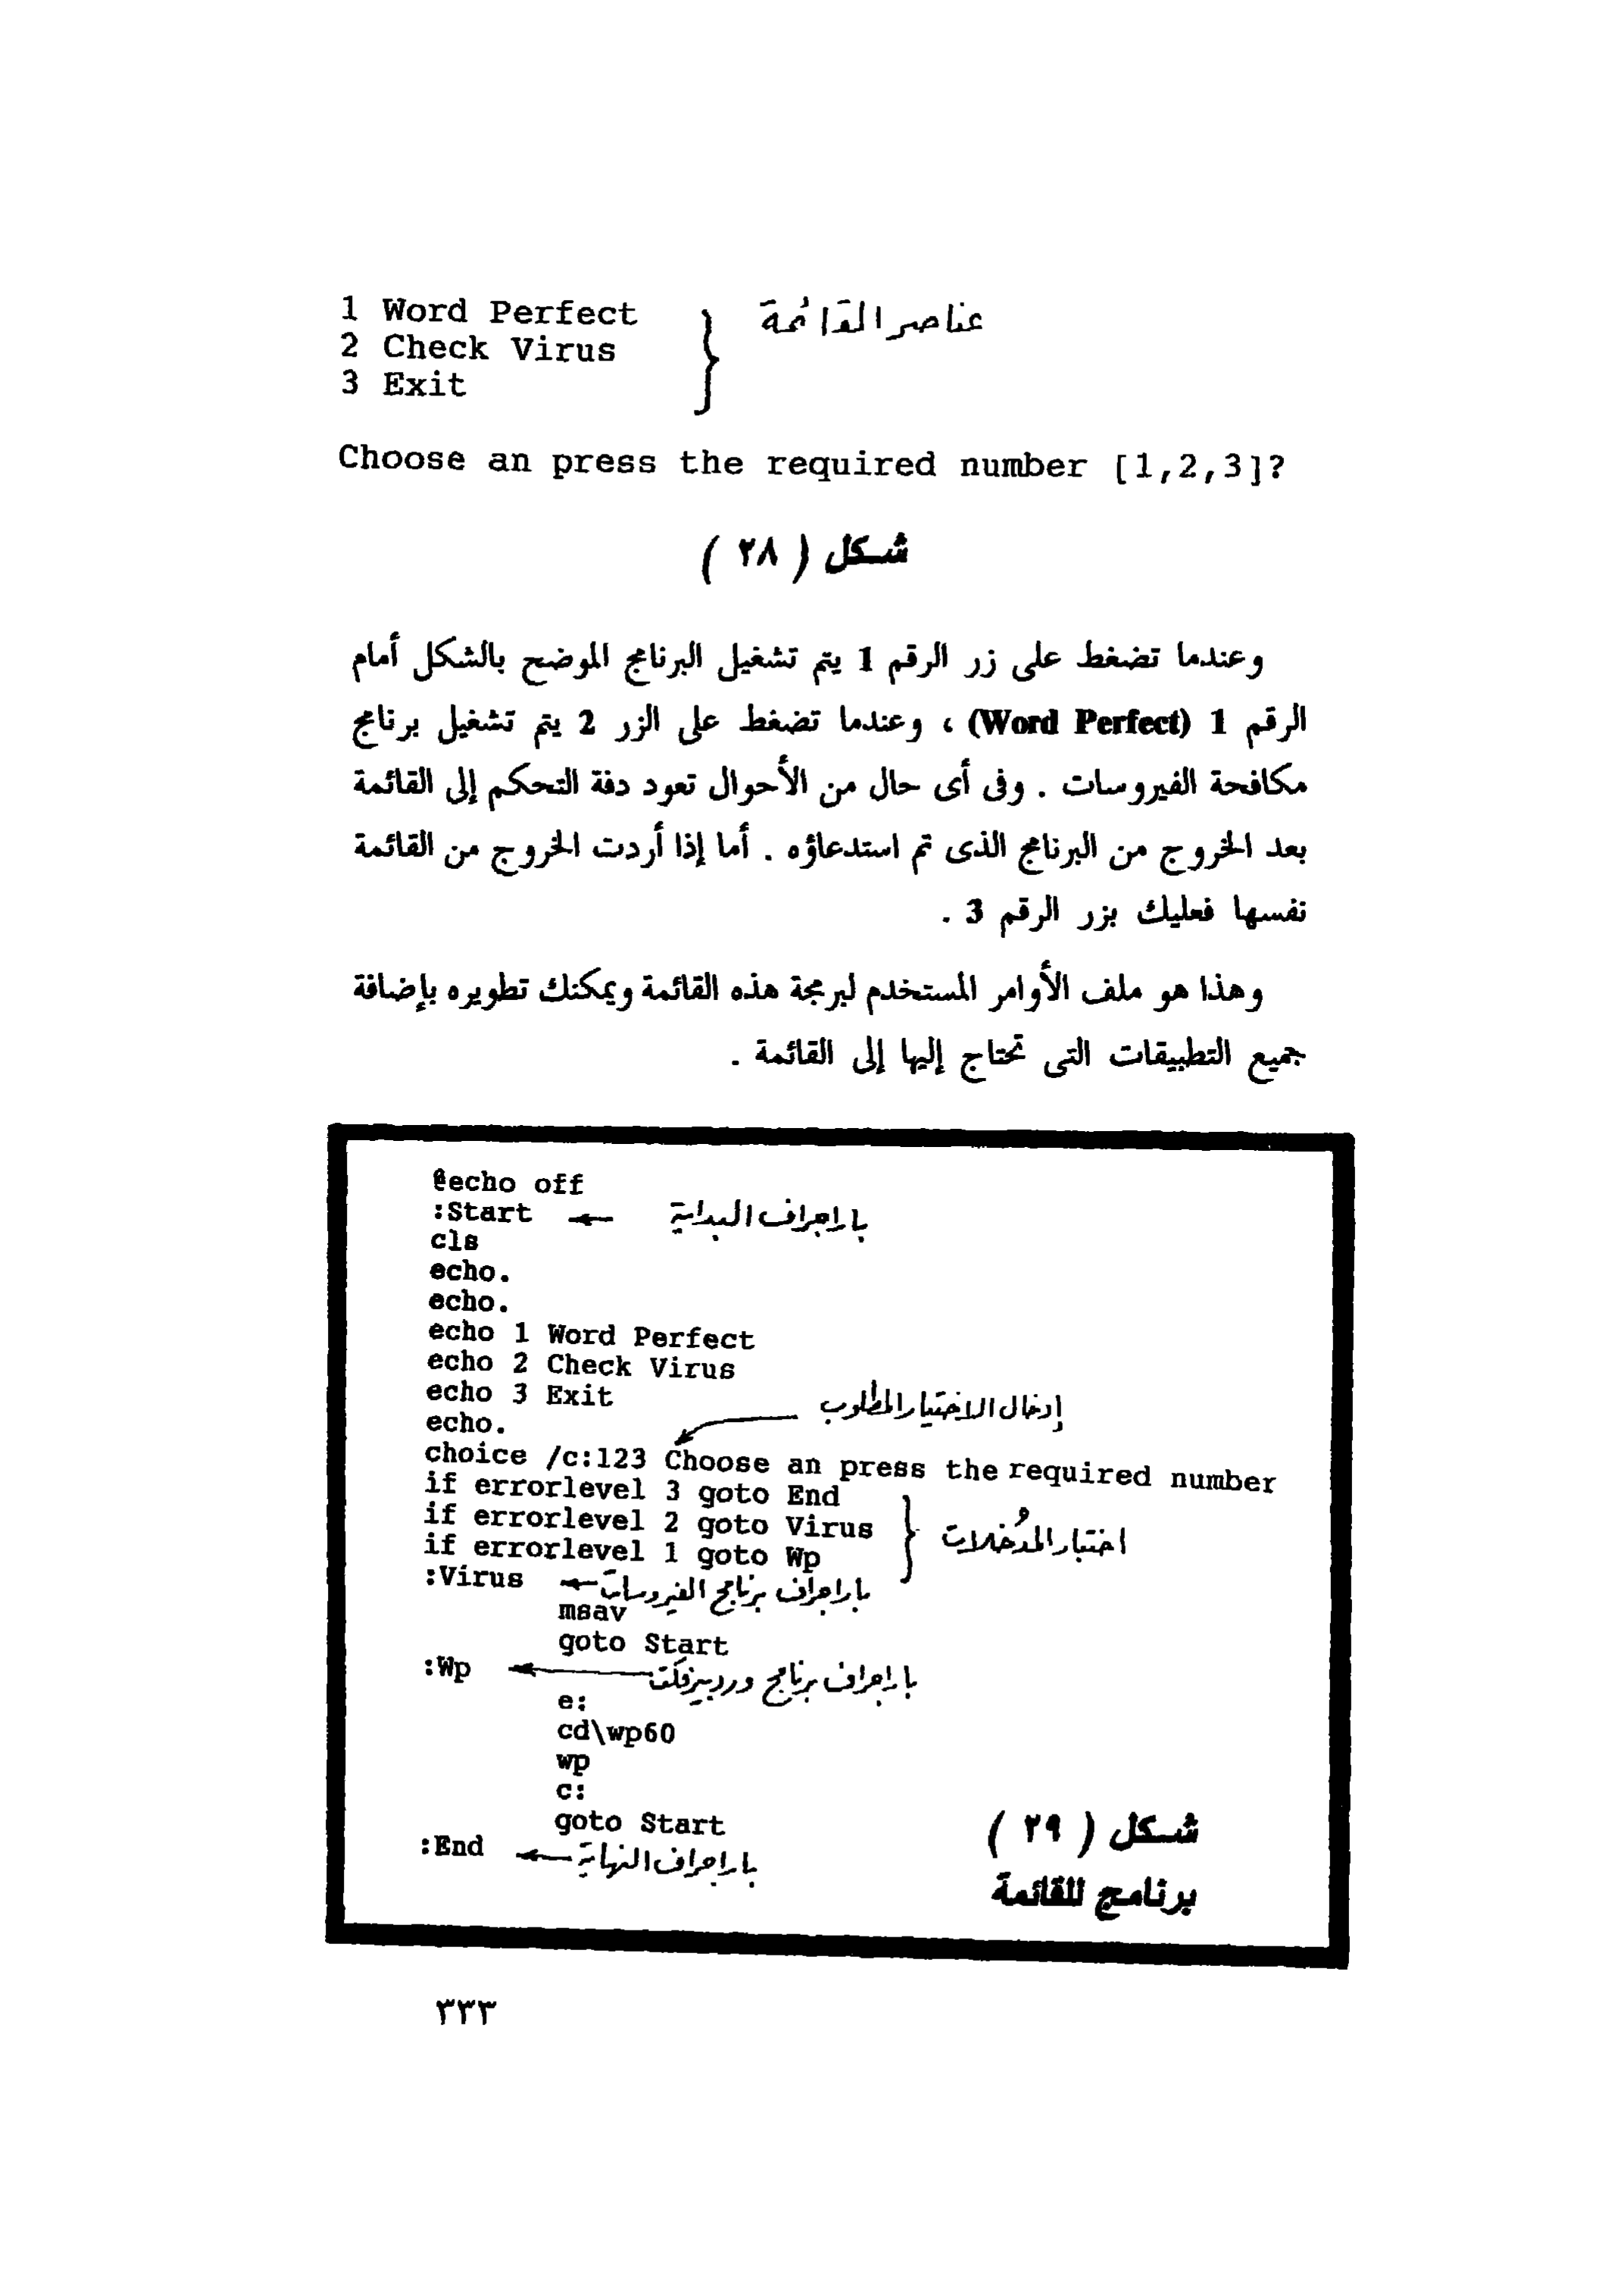 1 Word Perfect
2 Check Virus
3 Exit
عناصر القائمة
Choose an press the required number [1,2,3]?
شكل ( ٢٨ )
وعندما تضغط على زر الرقم 1 يتم تشغيل البرنامج الموضح بالشكل أمام
الرقم 1 (Word Perfect) ، وعندما تضغط على الزر 2 يتم تشغيل برنامج
مكافحة الفيروسات . وفى أى حال من الأحوال تعود دفة التحكم إلى القائمة
بعد الخروج من البرنامج الذى تم استدعاؤه . أما إذا أردت الخروج من القائمة
نفسها فعليك بزر الرقم 3 .
وهذا هو ملف الأوامر المستخدم لبرمجة هذه القائمة ويمكنك تطويره بإضافة
جميع التطبيقات التى تحتاج إليها إلى القائمة .
@echo off
:Start ← باراجراف البداية
cls
echo.
echo.
echo 1 Word Perfect
echo 2 Check Virus
echo 3 Exit
إدخال الاختيار المطلوب
echo.
choice /c:123 Choose an press the required number
if errorlevel 3 goto End
if errorlevel 2 goto Virus
if errorlevel 1 goto Wp
اختبار المُدخلات
:Virus ← باراجراف برنامج الفيروسات
msav
goto Start
:Wp ← باراجراف برنامج وردبيرفكت
e:
cd\wp60
wp
c:
goto Start
:End ← باراجراف النهاية
شكل ( ٢٩ )
برنامج للقائمة
٣٣٣